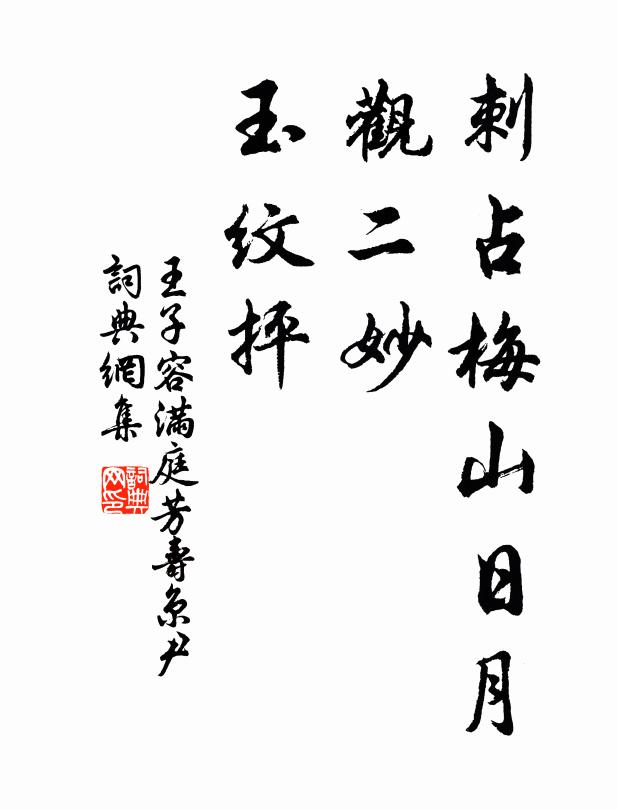 刺占梅山日月
觀二妙
玉紋抨
王子容滿庭芳壽京尹
詞典網集
詞典
网印